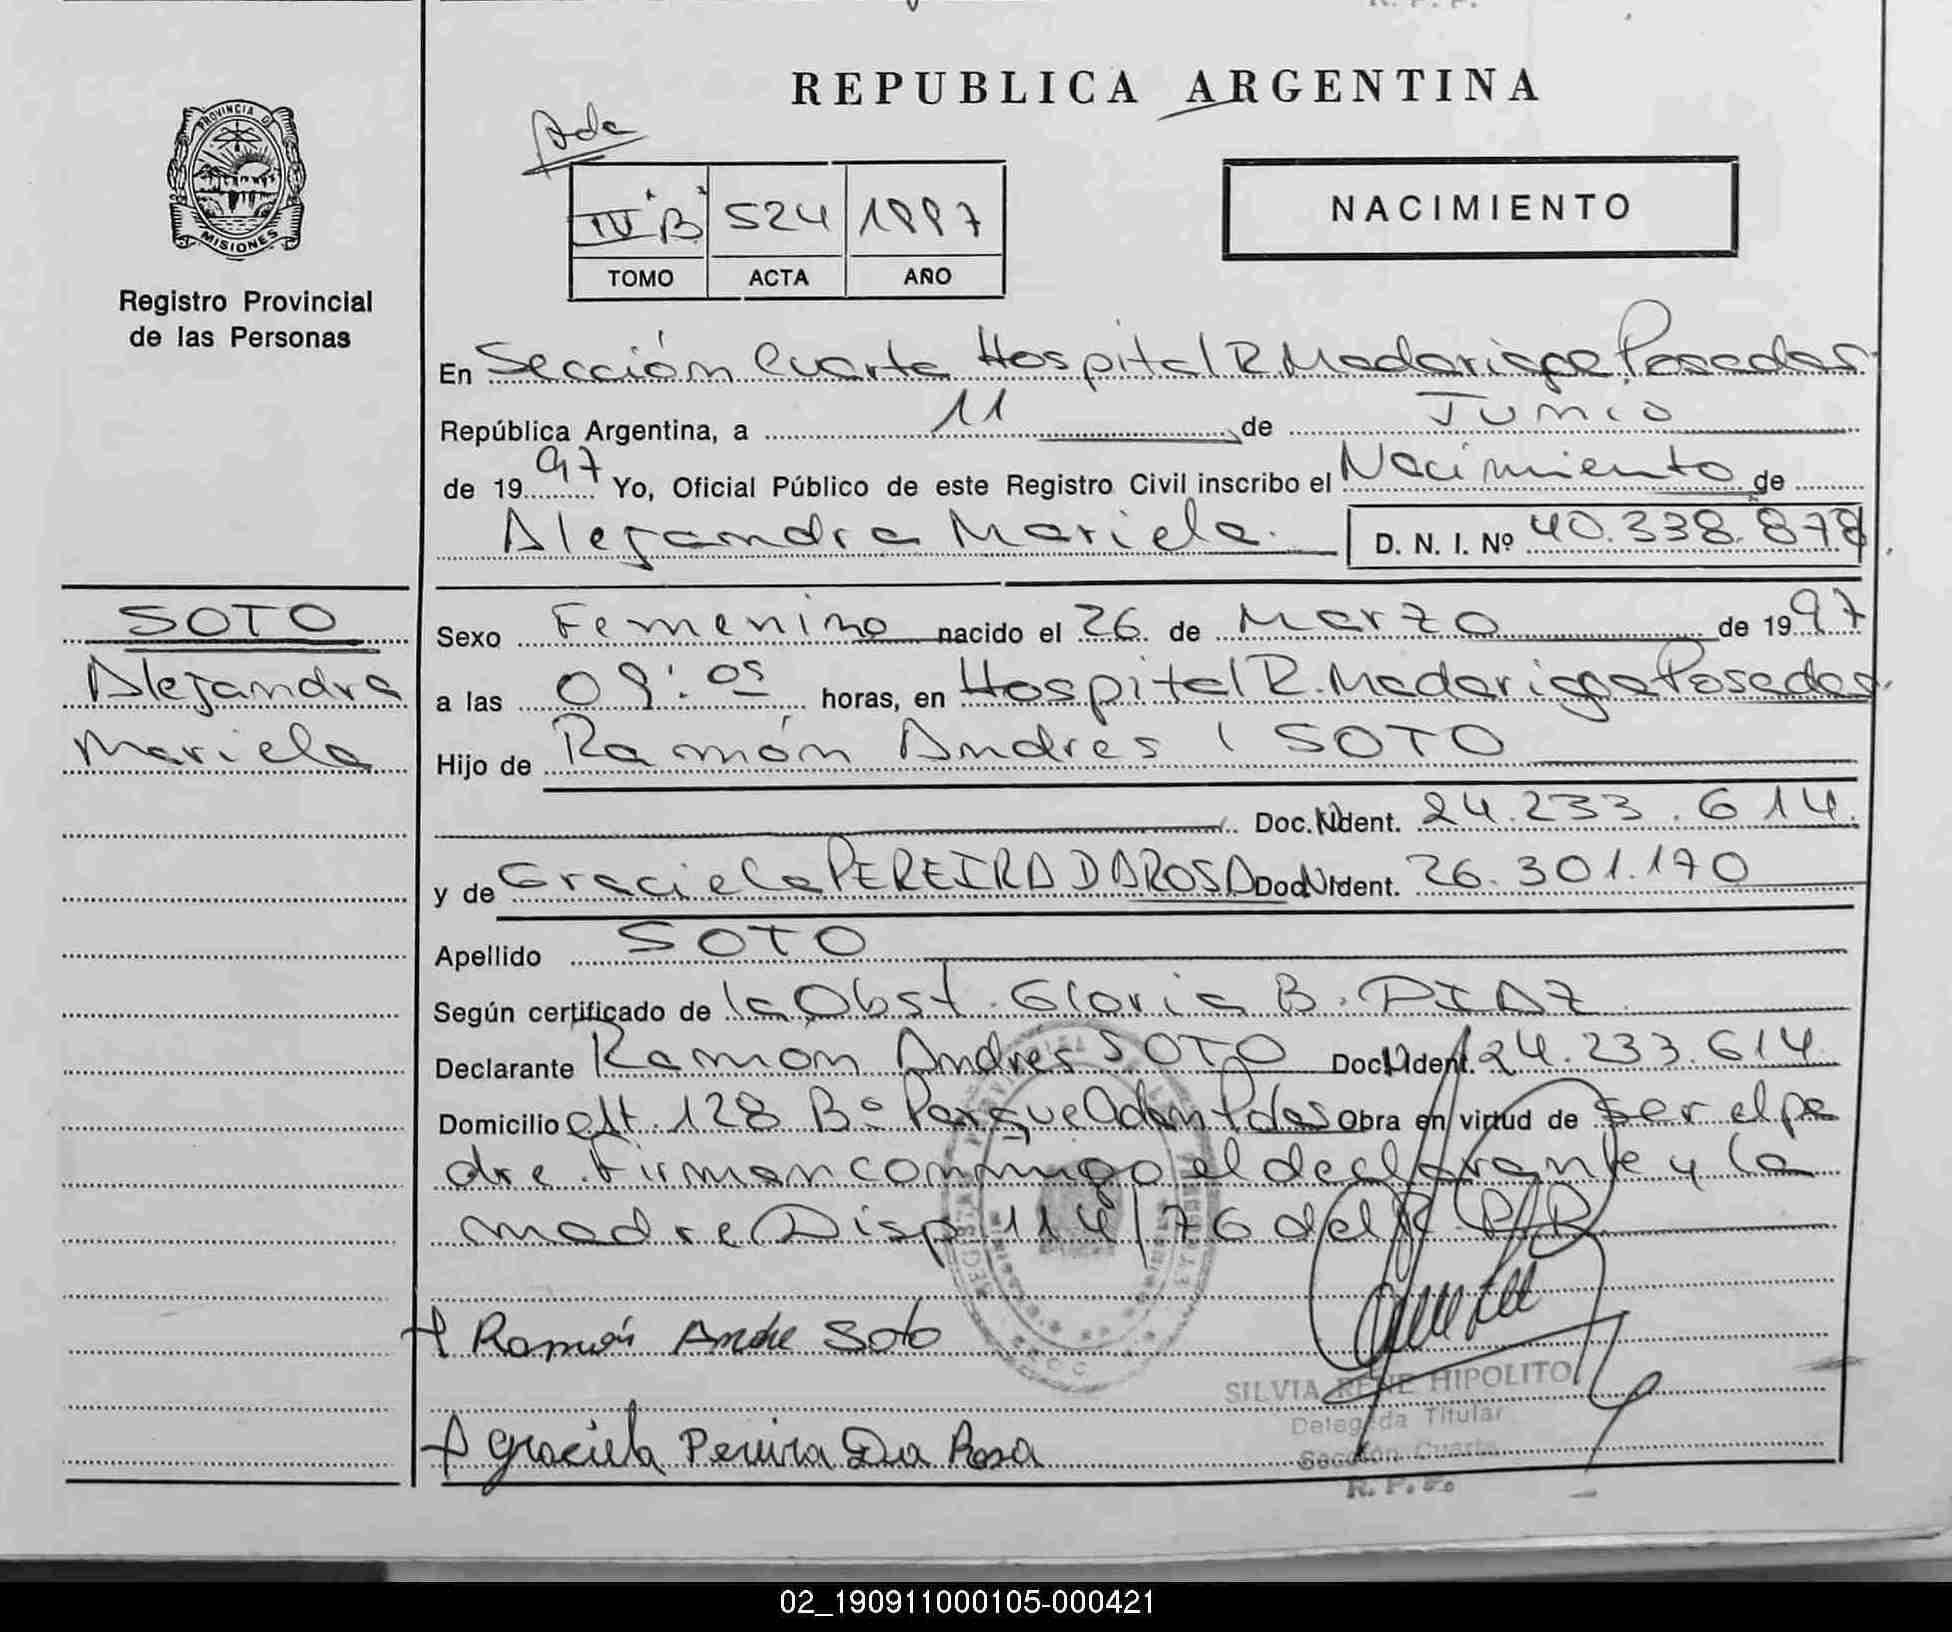 REPUBLICA ARGENTINA
PROVINCIA DE
MISIONES
Registro Provincial
de las Personas
Ada
IV "B" 524 1997
TOMO ACTA AÑO
NACIMIENTO
En Sección Cuarta Hospital R. Madariaga Posadas
República Argentina, a 11 de Junio
de 1997 Yo, Oficial Público de este Registro Civil inscribo el Nacimiento de
Alejandra Mariela. D. N. I. Nº 40.338.878
SOTO
Alejandra
Mariela
Sexo Femenino nacido el 26 de Marzo de 1997
a las 09:05 horas, en Hospital R. Madariaga Posadas
Hijo de Ramón Andres SOTO
Doc. Ident. 24.233.614
y de Graciela PEREIRA DA ROSA Doc. Ident. 26.301.170
Apellido SOTO
Según certificado de la Obst. Gloria B. DIAZ
Declarante Ramon Andres SOTO Doc. Ident. 24.233.614
Domicilio 128 Bº Parque Adam Pdas Obra en virtud de ser el pa
dre. Firman conmigo el declarante y la
madre Disp 114/76 del R.P.P.
Ramón Andre Soto
SILVIA RENE HIPOLITO
Delegada Titular
Sección Cuarta
R. P. P.
Graciela Pereira Da Rosa
02_190911000105-000421